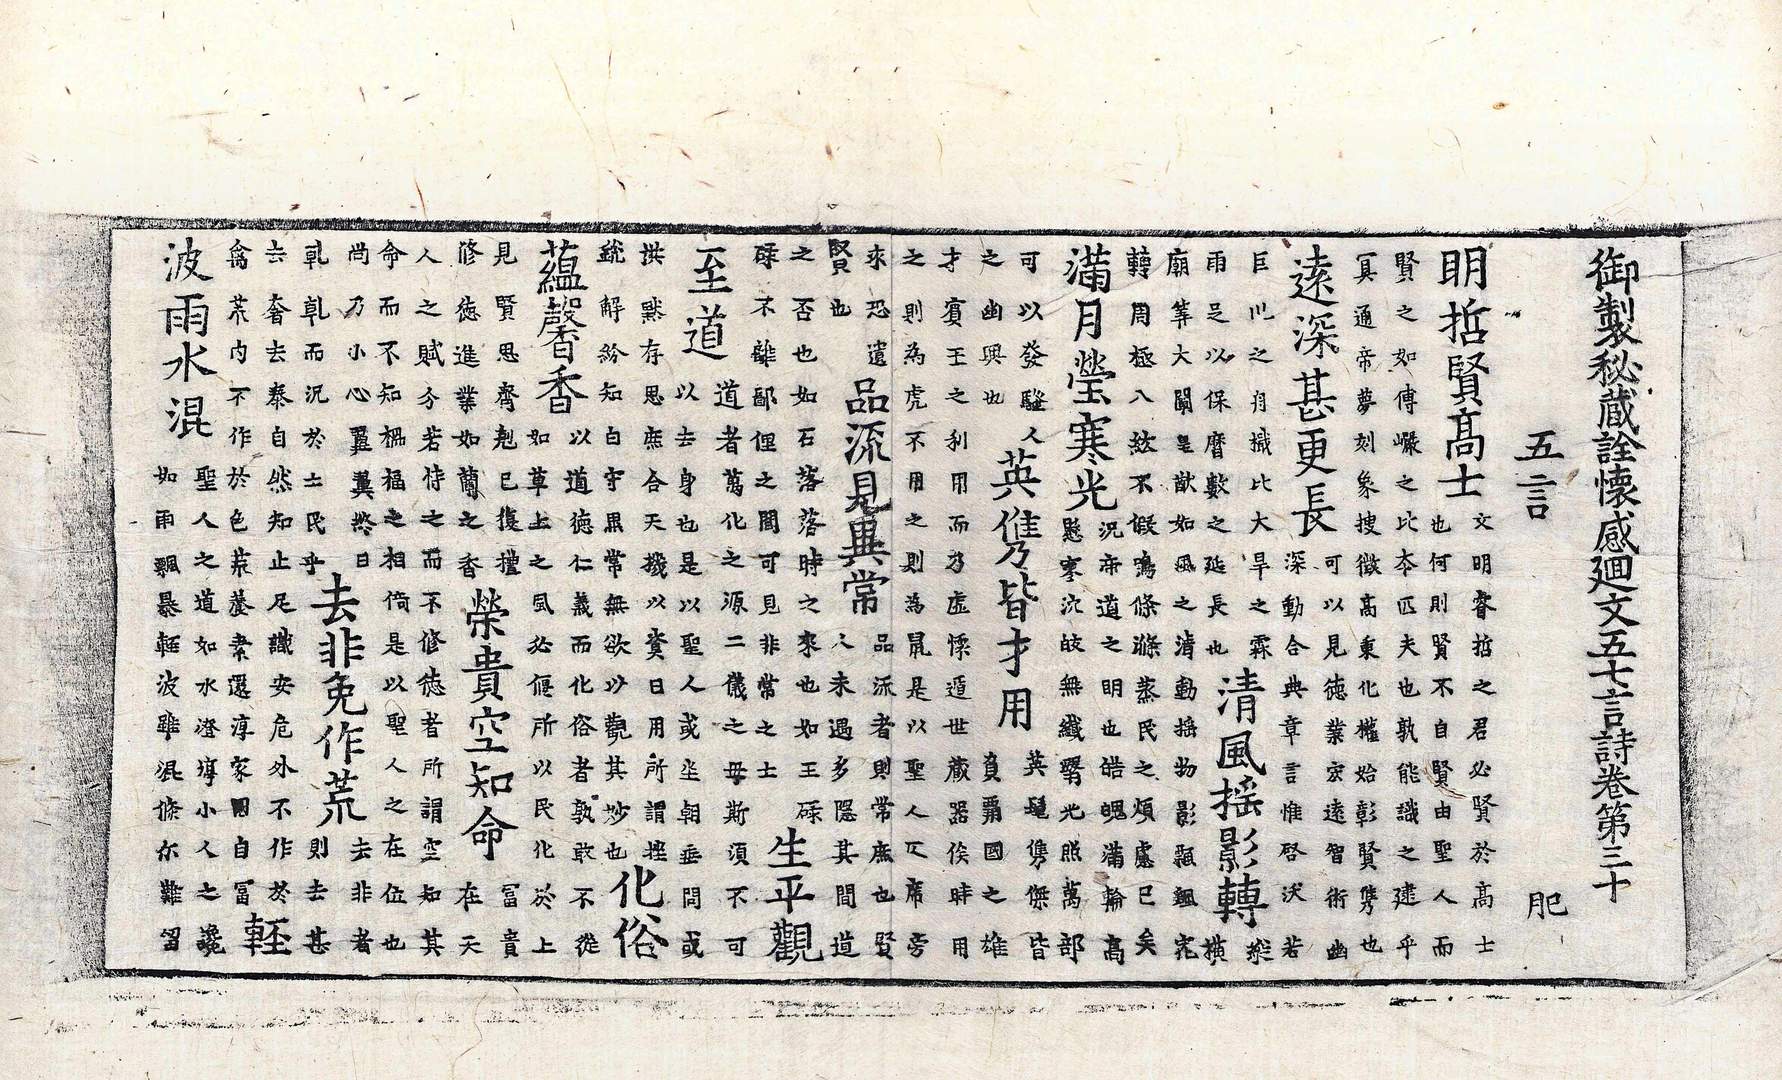 御製秘蔵詮懷感廻文五七言詩卷第三十
五言　肥
明哲賢髙士
文明睿哲之君必賢於高士
也何則賢不自賢由聖人而
賢之如傅巖之比夲匹夫也孰能識之建乎
冥通帝夢刻象搜徵高秉化權始彰賢雋也
遠深甚更長
可以見徳業宏遠智術幽
深動合典章言惟啓沃若
巨川之舟檝比大旱之霖
雨足以保磨數之延長也
清風揺影轉
縱
橫
廟筭大闡皇猷如風之清動揺物影飄颻宛
轉周極八紘不假鳴條滌蒸民之煩慮已矣
滿月瑩寒光
況帝道之明也皓魄滿輪高
懸寒沈皎無纖翳光照萬部
可以發騷人
之幽興也
英儁皆才用
英髦雋傑皆
負霸國之雄
才賓王之利用而乃虚懷遁世蔵器俟時用
之則為虎不用之則為鼠是以聖人仄席旁
來恐遺
賢也
品流見異常
品流者則常庶也賢
人未遇多隱其間道
之否也如石落落時之來也如玉碌
碌不離鄙俚之間可見非常之士
生平觀
至道
道者萬化之源二儀之毋斯須不可
以去身也是以聖人或坐朝垂問或
拱默存思庶合天機以資日用所謂挫
銳解紛知白守黒常無欲以觀其妙也
化俗
蘊馨香
以道徳仁義而化俗者孰敢不從
如草上之風必偃所以民化於上
見賢思齊剋已復禮
修徳進業如蘭之香
榮貴空知命
冨貴
在天
人之賦分若恃之而不修徳者所謂空知其
命而不知禍福之相倚是以聖人之在位也
尚乃小心翼翼終日
乹乹而況於士民乎
去非免作荒
去非者
則去甚
去奢去泰自然知止足識安危外不作於
禽荒内不作於色荒養素還淳家國自冨
輕
波雨水混
聖人之道如水澄渟小人之讒
如雨飄暴輕波雖混條尔難留